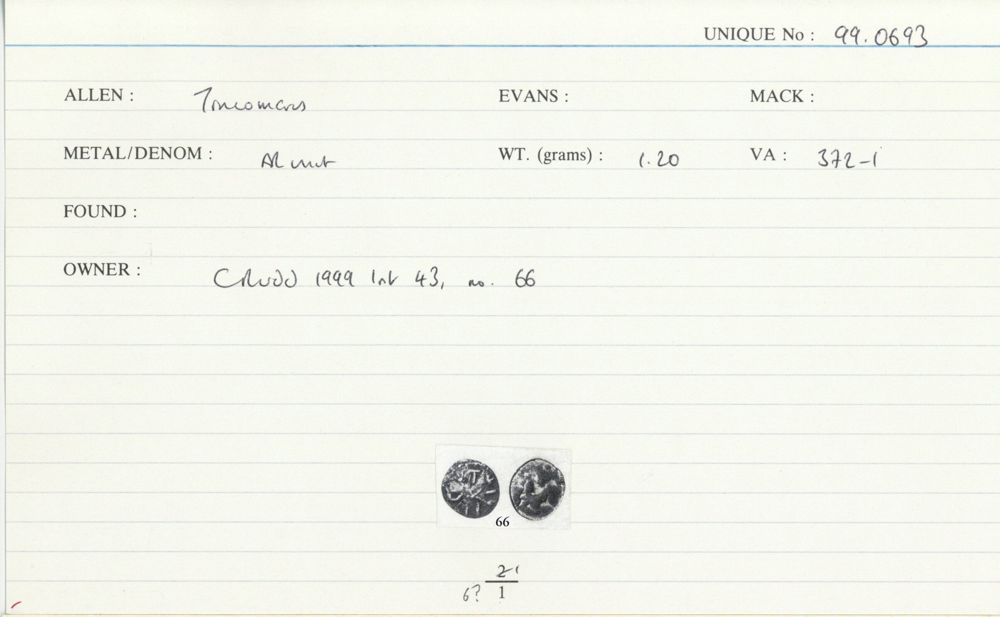 UNIQUE No : 99.0693
ALLEN : Tincomarus EVANS : MACK :
METAL/DENOM : AR unit WT. (grams) : 1.20 VA : 372-1
FOUND :
OWNER : C Rudd 1999 list 43, no. 66
66
2'
6? 1